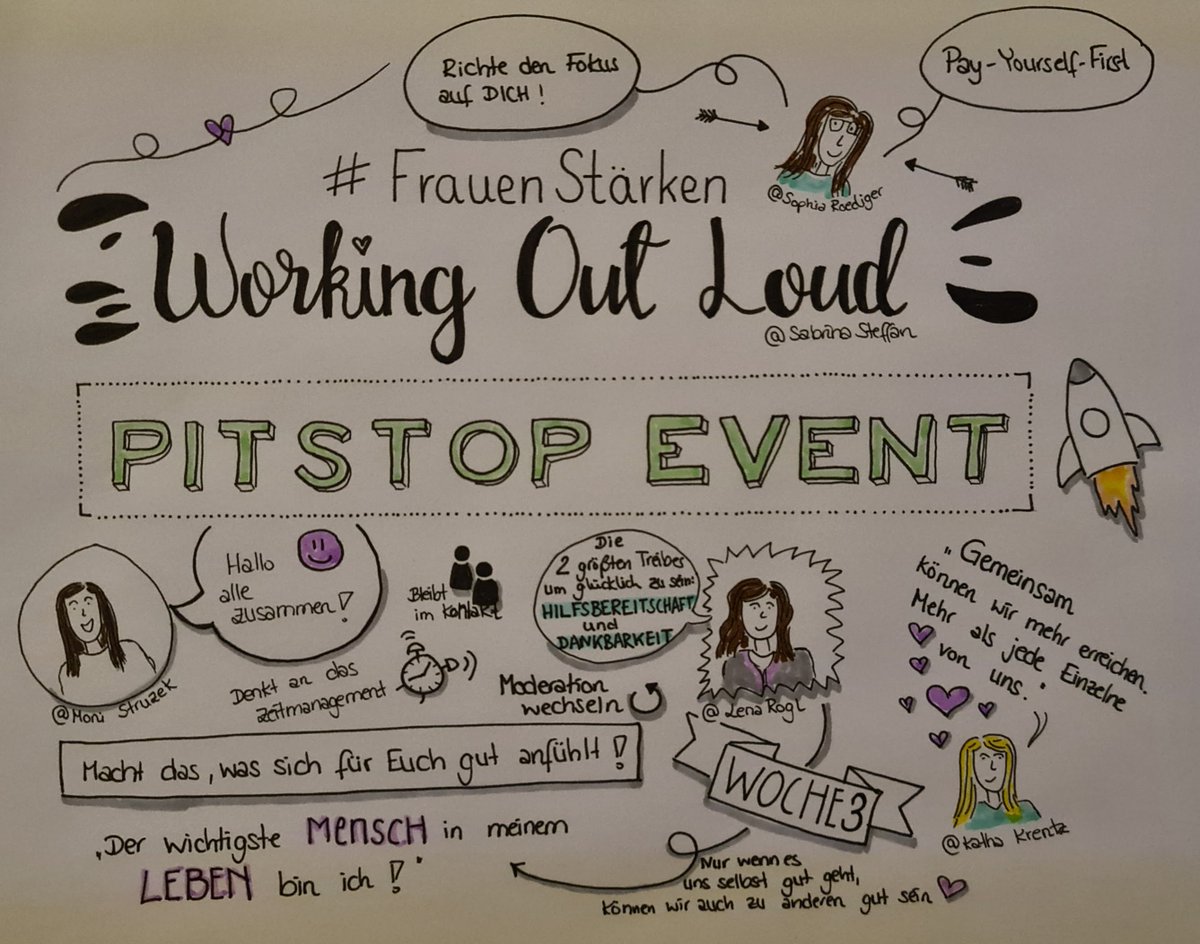 Richte den Fokus
auf DICH !
Pay-Yourself-First
# FrauenStärken
@Sophia Roediger
Working Out Loud
@Sabrina Steffan
PITSTOP EVENT
Hallo
alle
zusammen!
@Moni Struzek
Bleibt
im Kontakt
Denkt an das
Zeitmanagement
Die
2 größten Treiber
um glücklich zu sein:
HILFSBEREITSCHAFT
und
DANKBARKEIT
Moderation
wechseln
@Lena Rogl
„Gemeinsam
können wir mehr erreichen.
Mehr als jede Einzelne
von uns."
@Katha Krentz
Macht das, was sich für Euch gut anfühlt!
WOCHE 3
„Der wichtigste MENSCH in meinem
LEBEN bin ich!"
Nur wenn es
uns selbst gut geht,
können wir auch zu anderen gut sein